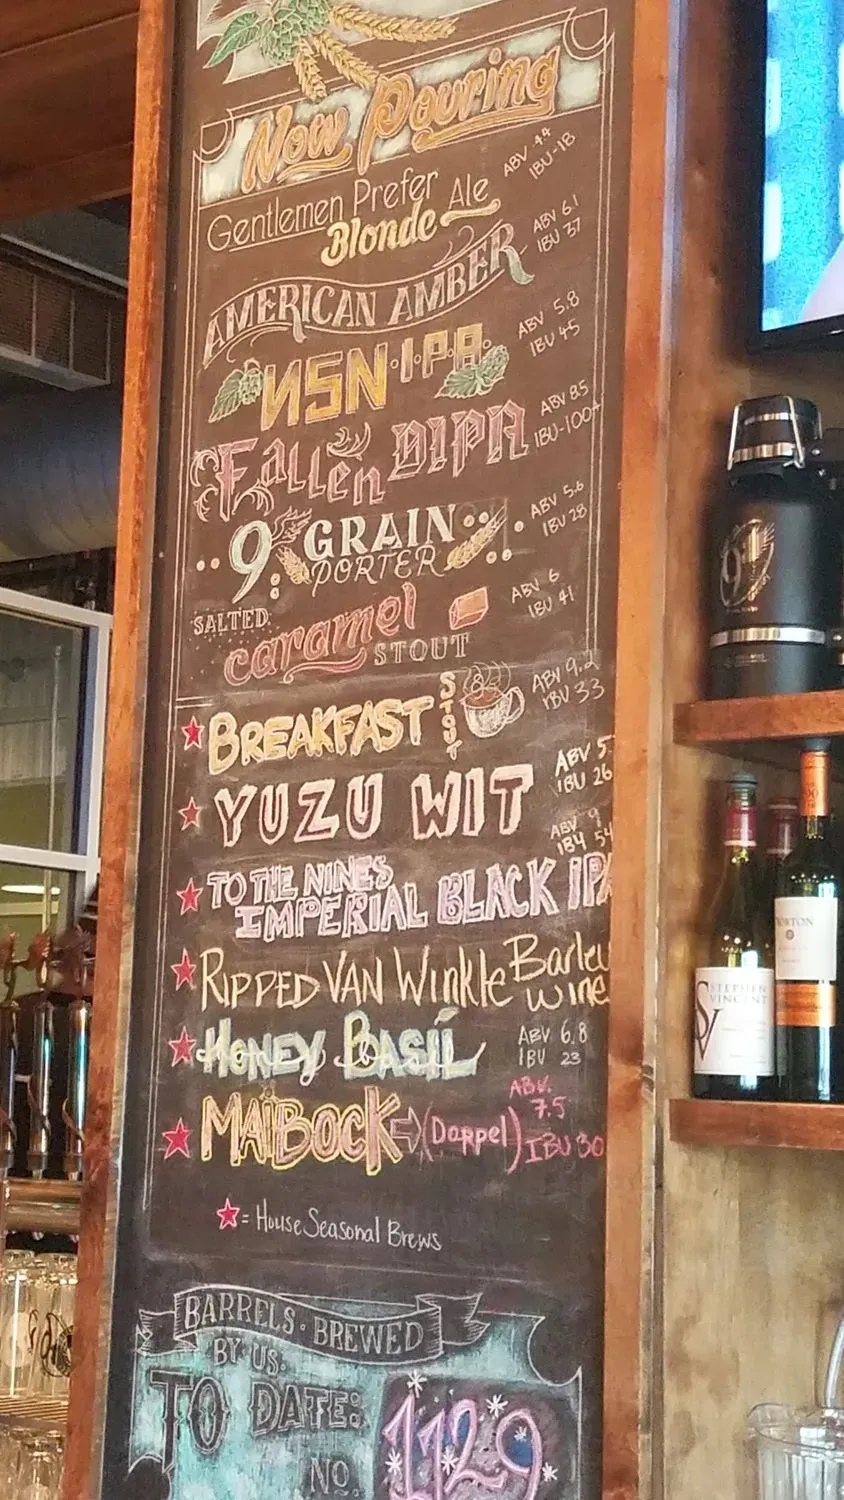 Now Pouring
Gentlemen Prefer
Blonde Ale
ABV 4.4
IBU-18
AMERICAN AMBER
ABV 6.1
IBU 37
NSN·I·P·A·
ABV 5.8
IBU 45
Fallen DIPA
ABV 8.5
IBU-100+
9 GRAIN
PORTER
ABV 5.6
IBU 28
SALTED
caramel
STOUT
ABV 6
IBU 41
BREAKFAST STOT
ABV 9.2
IBU 33
YUZU WIT
ABV 5
IBU 26
TO THE NINES
IMPERIAL BLACK IPA
ABV 9
IBU 54
RIPPED VAN Winkle Barley
wine
HONEY BASIL
ABV 6.8
IBU 23
MAIBOCK (Doppel)
ABV.
7.5
IBU 30
= House Seasonal Brews
BARRELS · BREWED
BY US
TO DATE:
NO. 1129
9
STEPHEN
VINCENT
SV